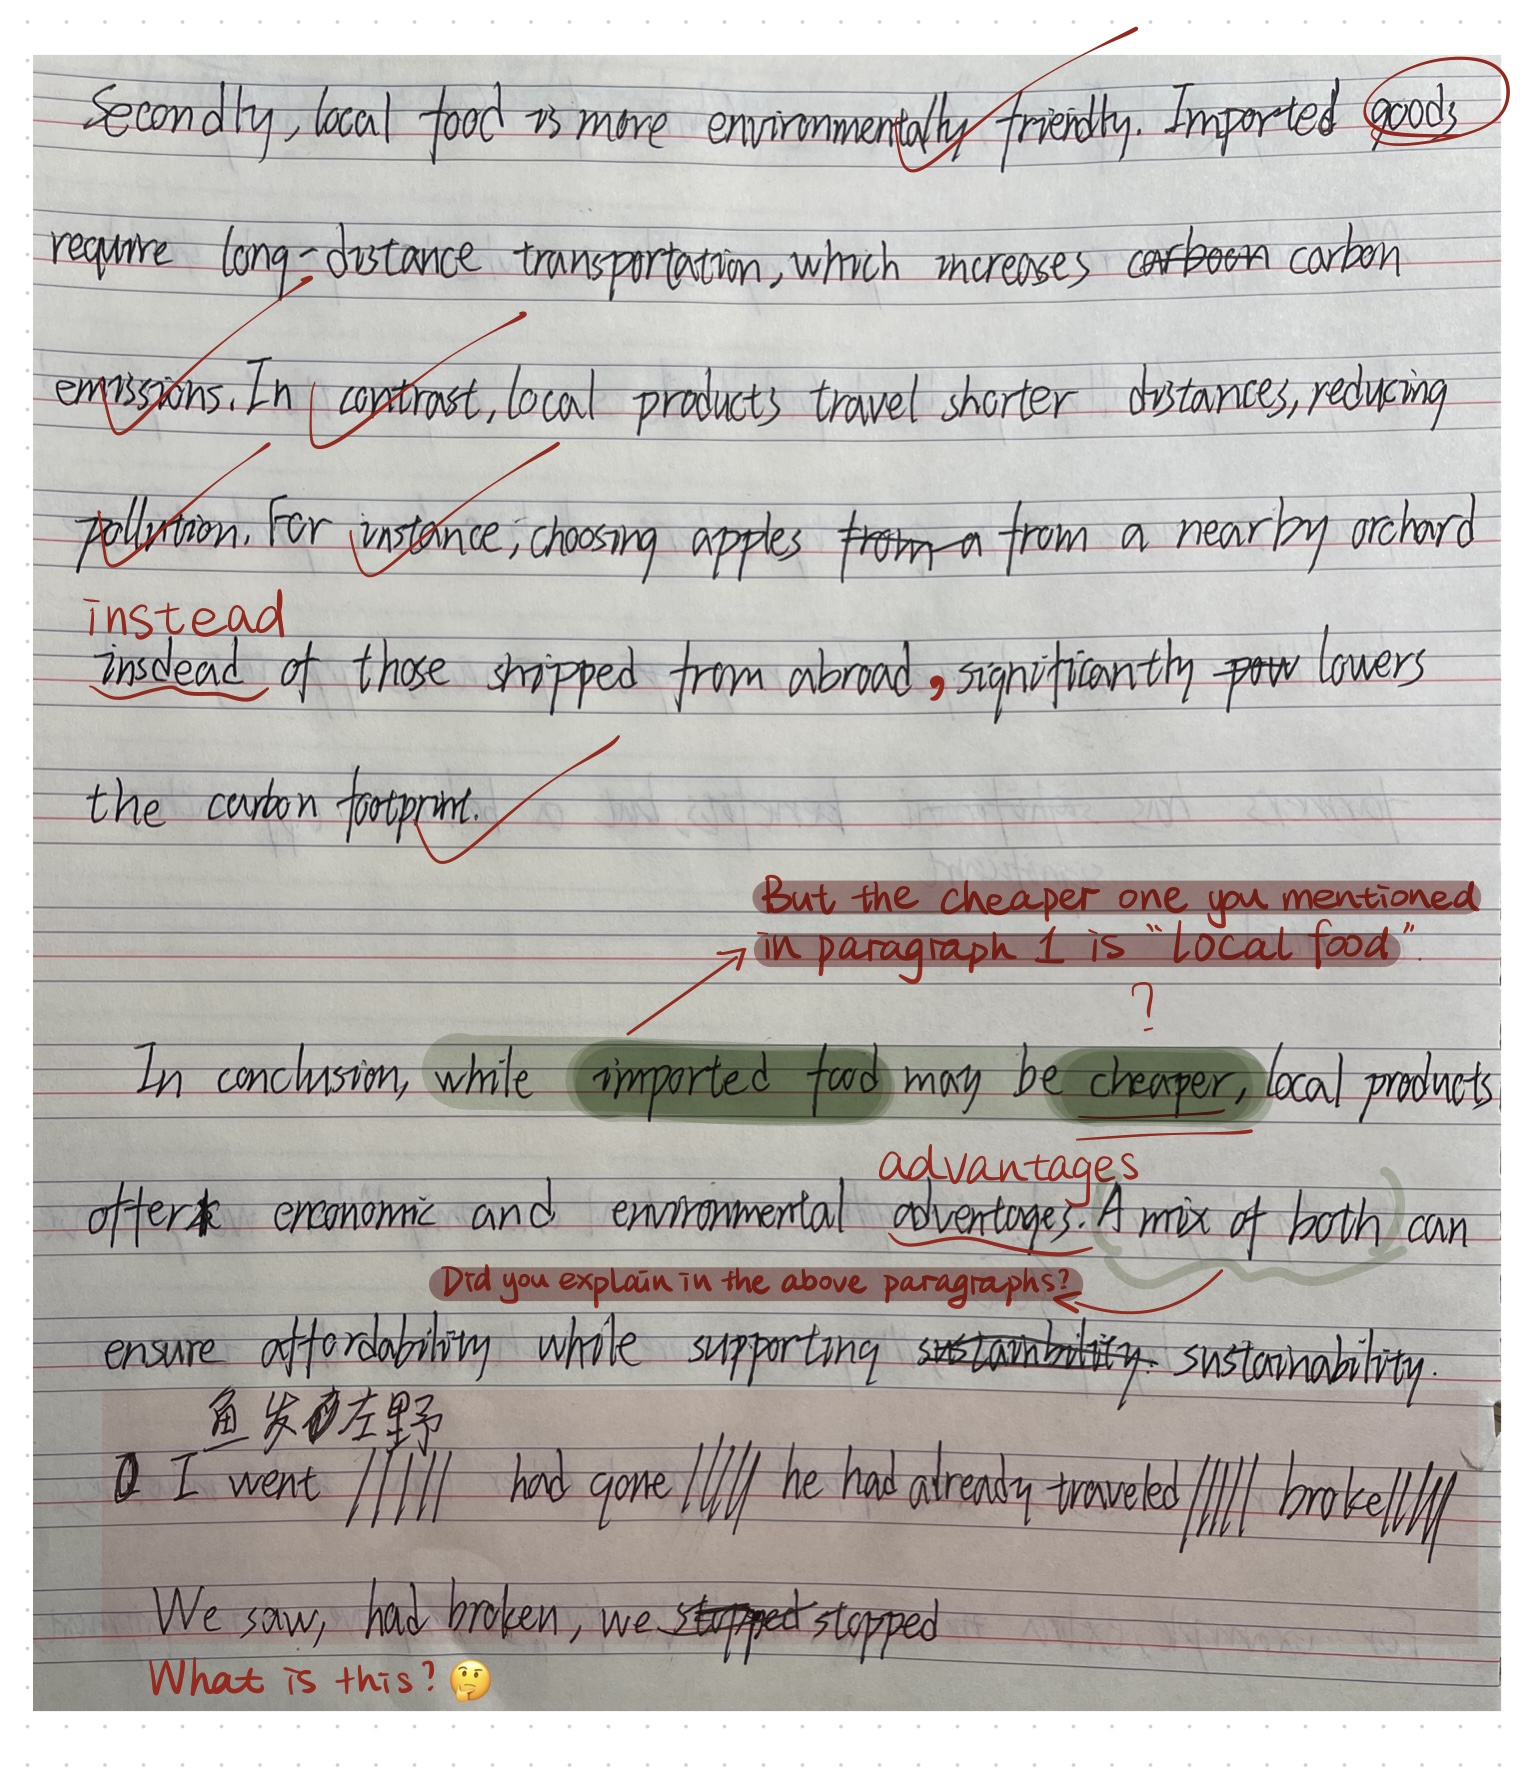 Secondly, local food is more environmentally friendly. Imported goods
require long-distance transportation, which increases carboon carbon
emissions. In contrast, local products travel shorter distances, reducing
pollution. For instance, choosing apples from a from a nearby orchard
instead
insdead of those shipped from abroad, significantly pow lowers
the carbon footprint.
But the cheaper one you mentioned
in paragraph 1 is "local food".
?
In conclusion, while imported food may be cheaper, local products
advantages
offer enconomic and environmental adventages. A mix of both can
Did you explain in the above paragraphs?
ensure affordability while supporting sustainbility. sustainability.
鱼发 左野
I went ///// had gone ///// he had already traveled ///// broke/////
We saw, had broken, we stopped stopped
What is this? 🤔